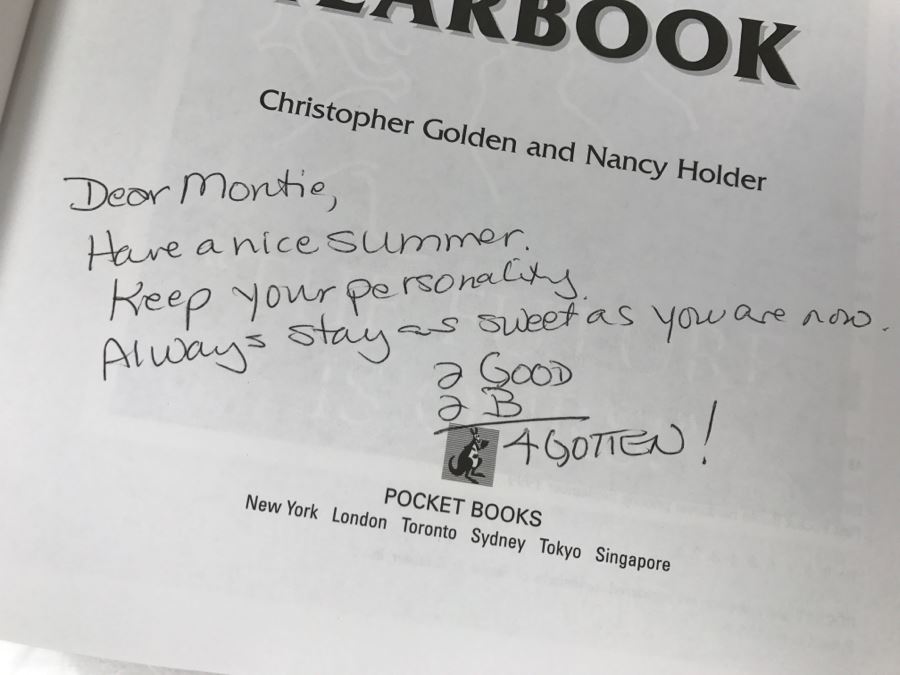 EARBOOK
Christopher Golden and Nancy Holder
Dear Montie,
Have a nice summer.
Keep your personality.
Always stay as sweet as you are now.
2 GOOD
2 B
4 GOTTEN!
POCKET BOOKS
New York London Toronto Sydney Tokyo Singapore